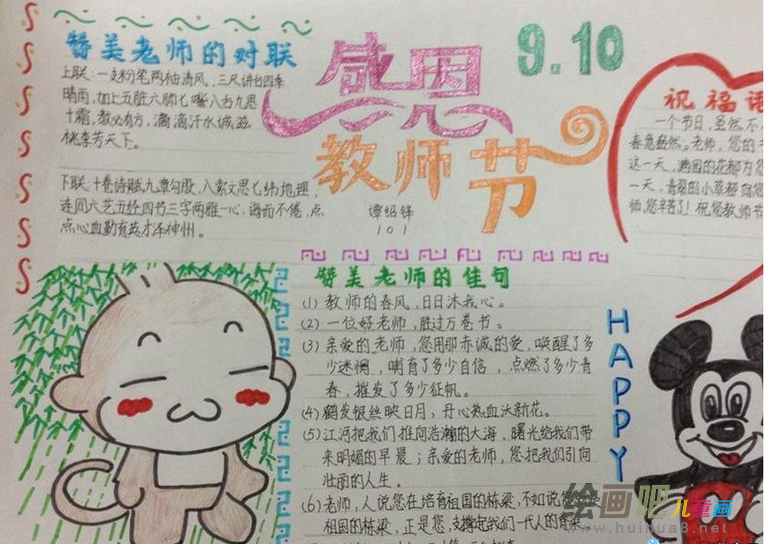 赞美老师的对联
上联：一支粉笔两袖清风，三尺讲台四季
晴雨，加上五脏六肺七嘴八舌九思
十霜，教必有方，滴滴汗水诚滋
桃李芳天下。
下联：十卷诗赋九章勾股，八索文思七纬地理，
连同六艺五经四节三字两雅一心，诲而不倦，点
点心血勤育英才泽神州。
感恩
教师节
9.10
谭绍锋
101
祝福语
一个节日，虽然不
老师，您的
这一天，满园的花都为您
一天，青翠的小草都向您
师，您辛苦了！祝您教师节
赞美老师的佳句
(1) 教师的春风，日日沐我心。
(2) 一位好老师，胜过万卷书。
(3) 亲爱的老师，您用那赤诚的爱，唤醒了多
少迷惘，哺育了多少自信，点燃了多少青
春，摧发了多少征帆。
(4) 鹤发银丝映日月，丹心热血沃新花。
(5) 江河把我们推向浩瀚的大海，曙光给我们带
来明媚的早晨；亲爱的老师，您把我们引向
壮丽的人生。
(6) 老师，人说您在培育祖国的栋梁，不如说您
祖国的栋梁，正是您，支撑起我们一代人的脊梁
HAPPY
绘画吧儿童画
www.huihua8.net